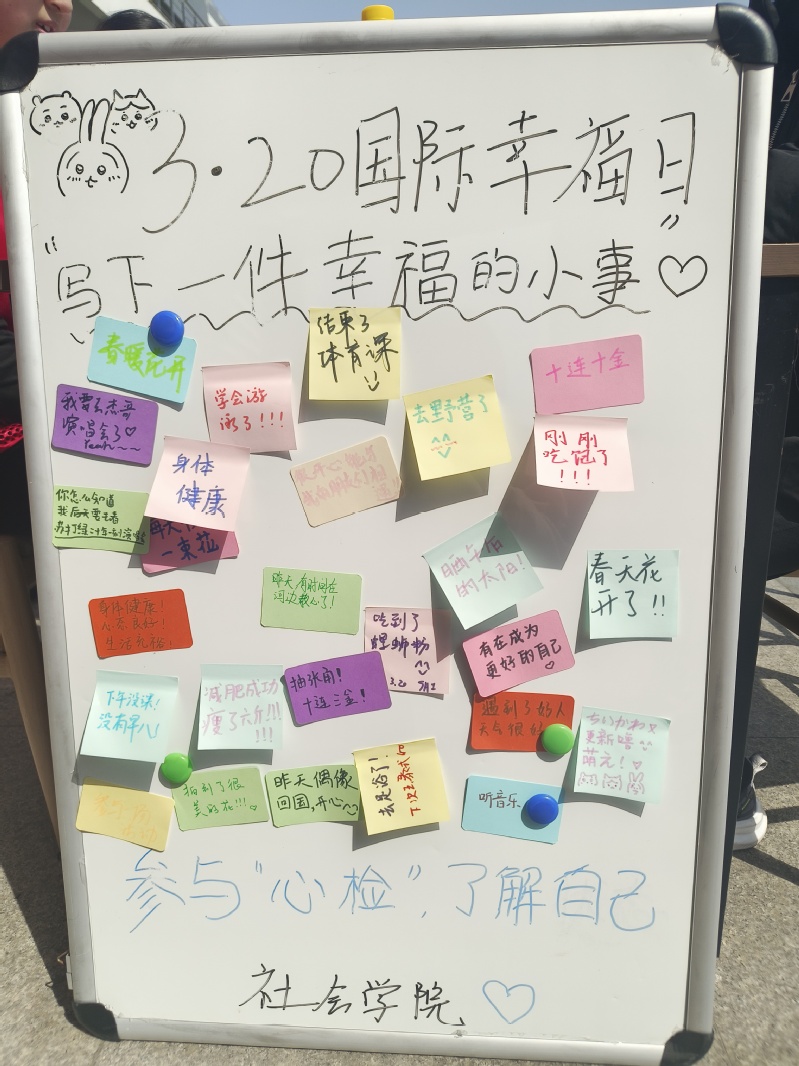 3·20国际幸福日
"写下一件幸福的小事"♡
春暖花开
结束了
体育课
学会游
泳了!!!
十连十金
我要去杰哥
演唱会了♡
Yeah~~~
去野营了
^^
刚刚
吃饱了
!!!
身体
健康
你怎么知道
我后天要去看
一束花
晒午后
的太阳!
春天花
开了!!
昨天有时间在
河边散心了!
身体健康!
心态良好!
生活充裕。
吃到了
螺蛳粉
3.20
有在成为
更好的自己
♡
抽张角!
十连三金!
下午没课!
没有早八
减肥成功
瘦了六斤!!!
!!!
遇到了好人
天气很好
ちいかわ
更新嘻
萌元!♡
拍到了很
美的花!!!♡
昨天偶像
回国,开心~
听音乐
参与"心检",了解自己
社会学院♡